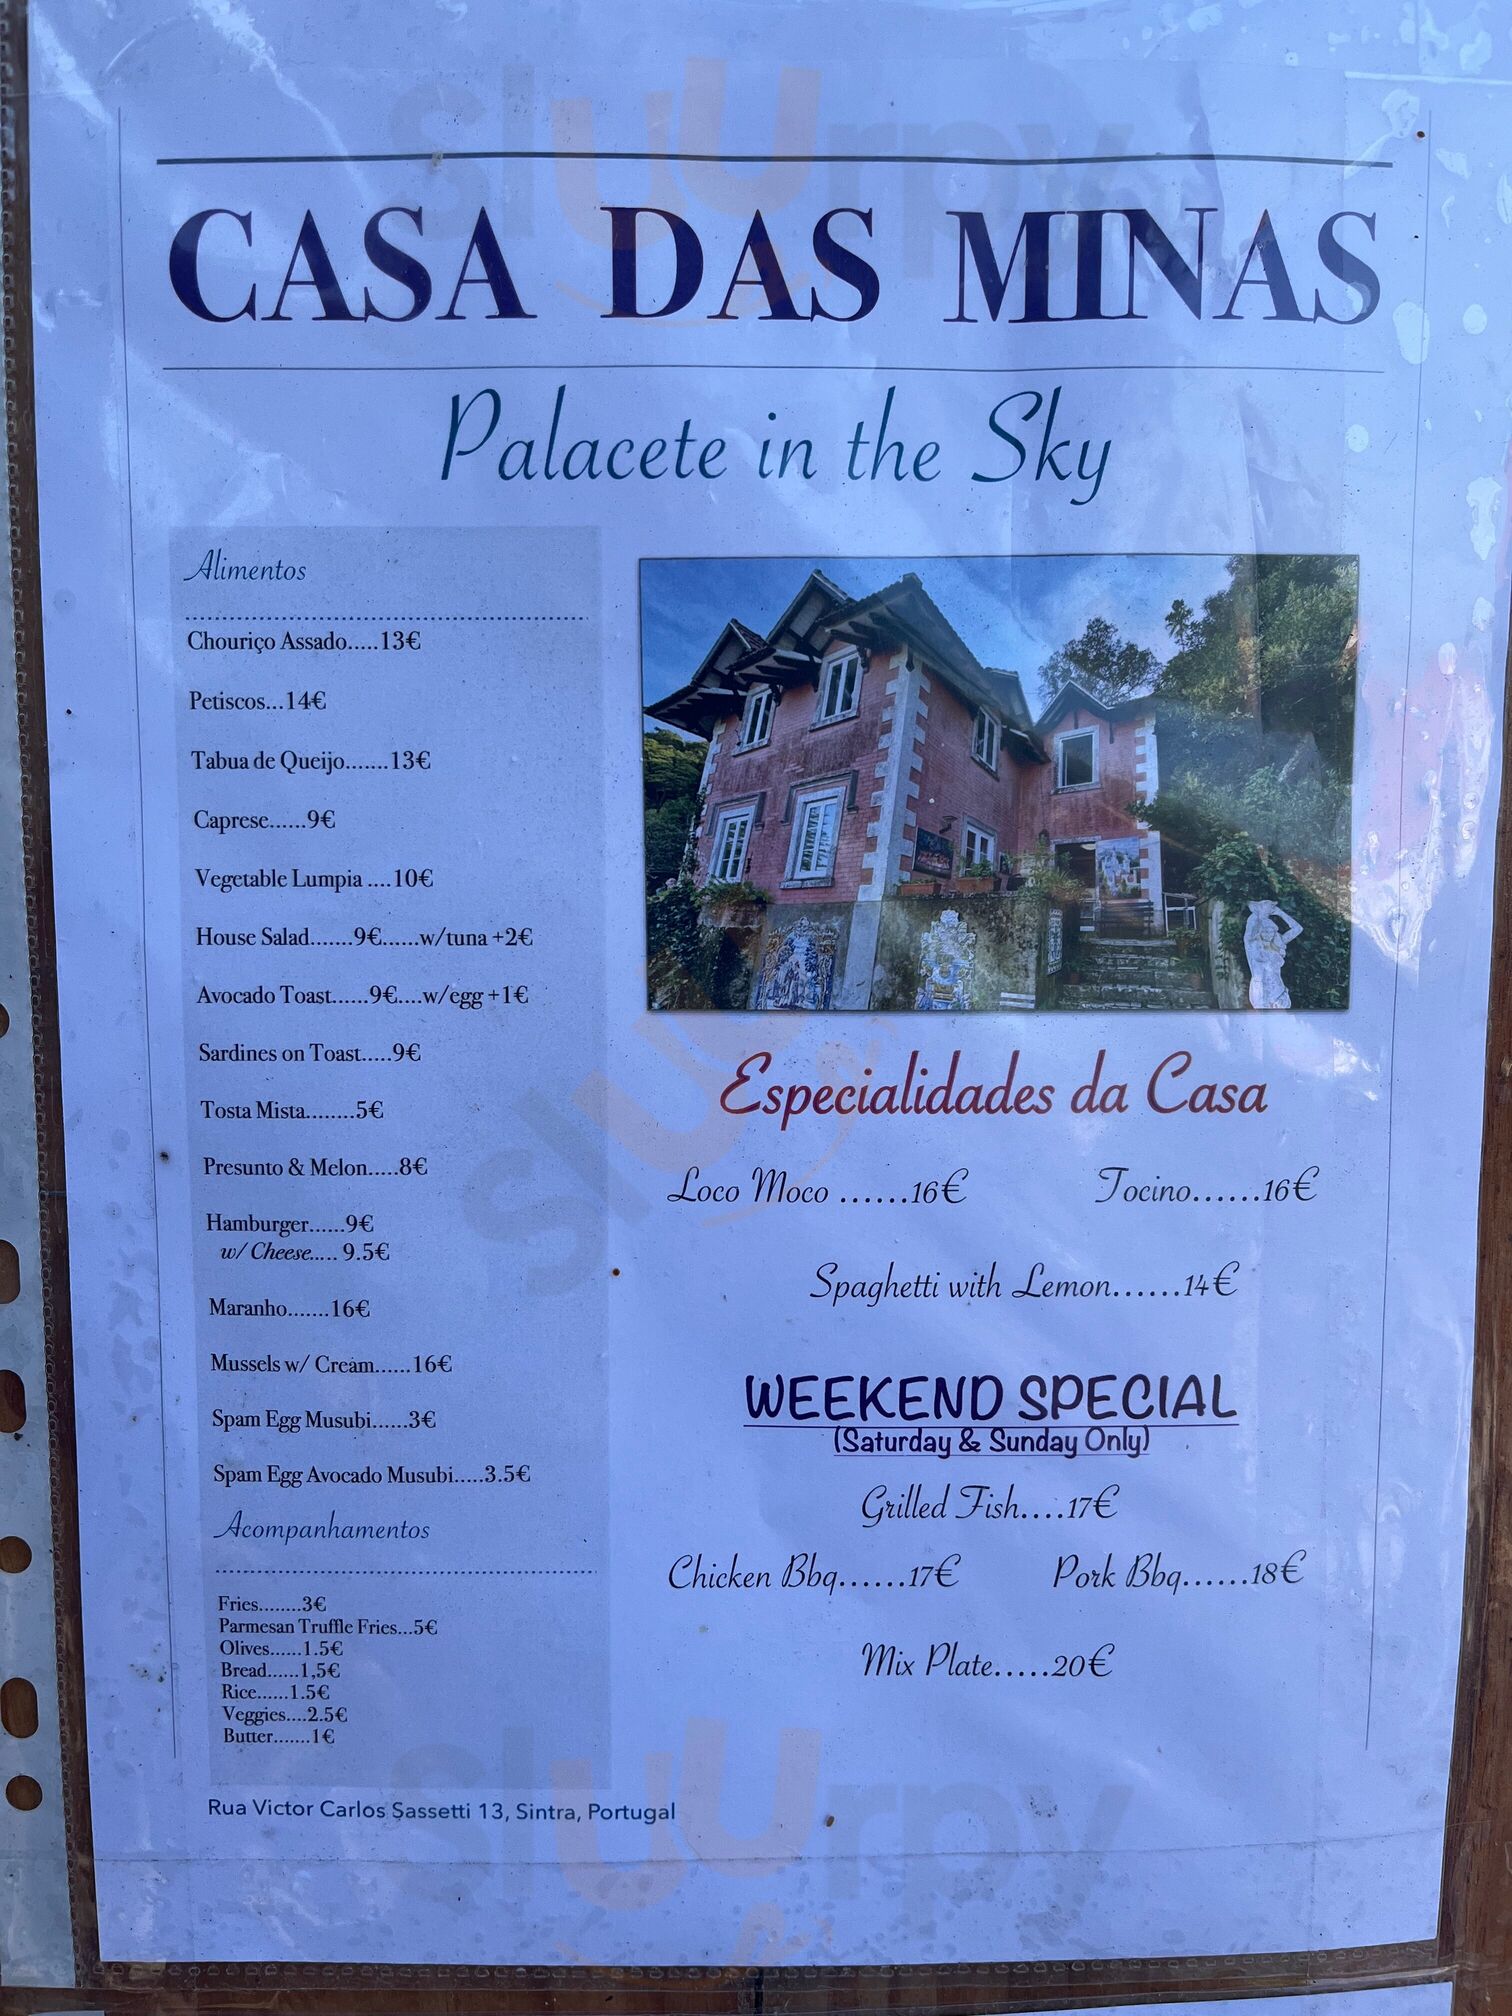 CASA DAS MINAS
Palacete in the Sky
Alimentos
Chouriço Assado.....13€
Petiscos...14€
Tabua de Queijo.......13€
Caprese......9€
Vegetable Lumpia ....10€
House Salad.......9€......w/tuna +2€
Avocado Toast......9€....w/egg +1€
Sardines on Toast.....9€
Tosta Mista........5€
Presunto & Melon.....8€
Hamburger......9€
w/ Cheese..... 9.5€
Maranho.......16€
Mussels w/ Cream......16€
Spam Egg Musubi......3€
Spam Egg Avocado Musubi.....3.5€
Acompanhamentos
Fries........3€
Parmesan Truffle Fries...5€
Olives......1.5€
Bread......1,5€
Rice......1.5€
Veggies....2.5€
Butter.......1€
Rua Victor Carlos Sassetti 13, Sintra, Portugal
Especialidades da Casa
Loco Moco ......16€
Tocino......16€
Spaghetti with Lemon......14€
WEEKEND SPECIAL
(Saturday & Sunday Only)
Grilled Fish....17€
Chicken Bbq......17€
Pork Bbq......18€
Mix Plate.....20€
sluurpy
sluurpy